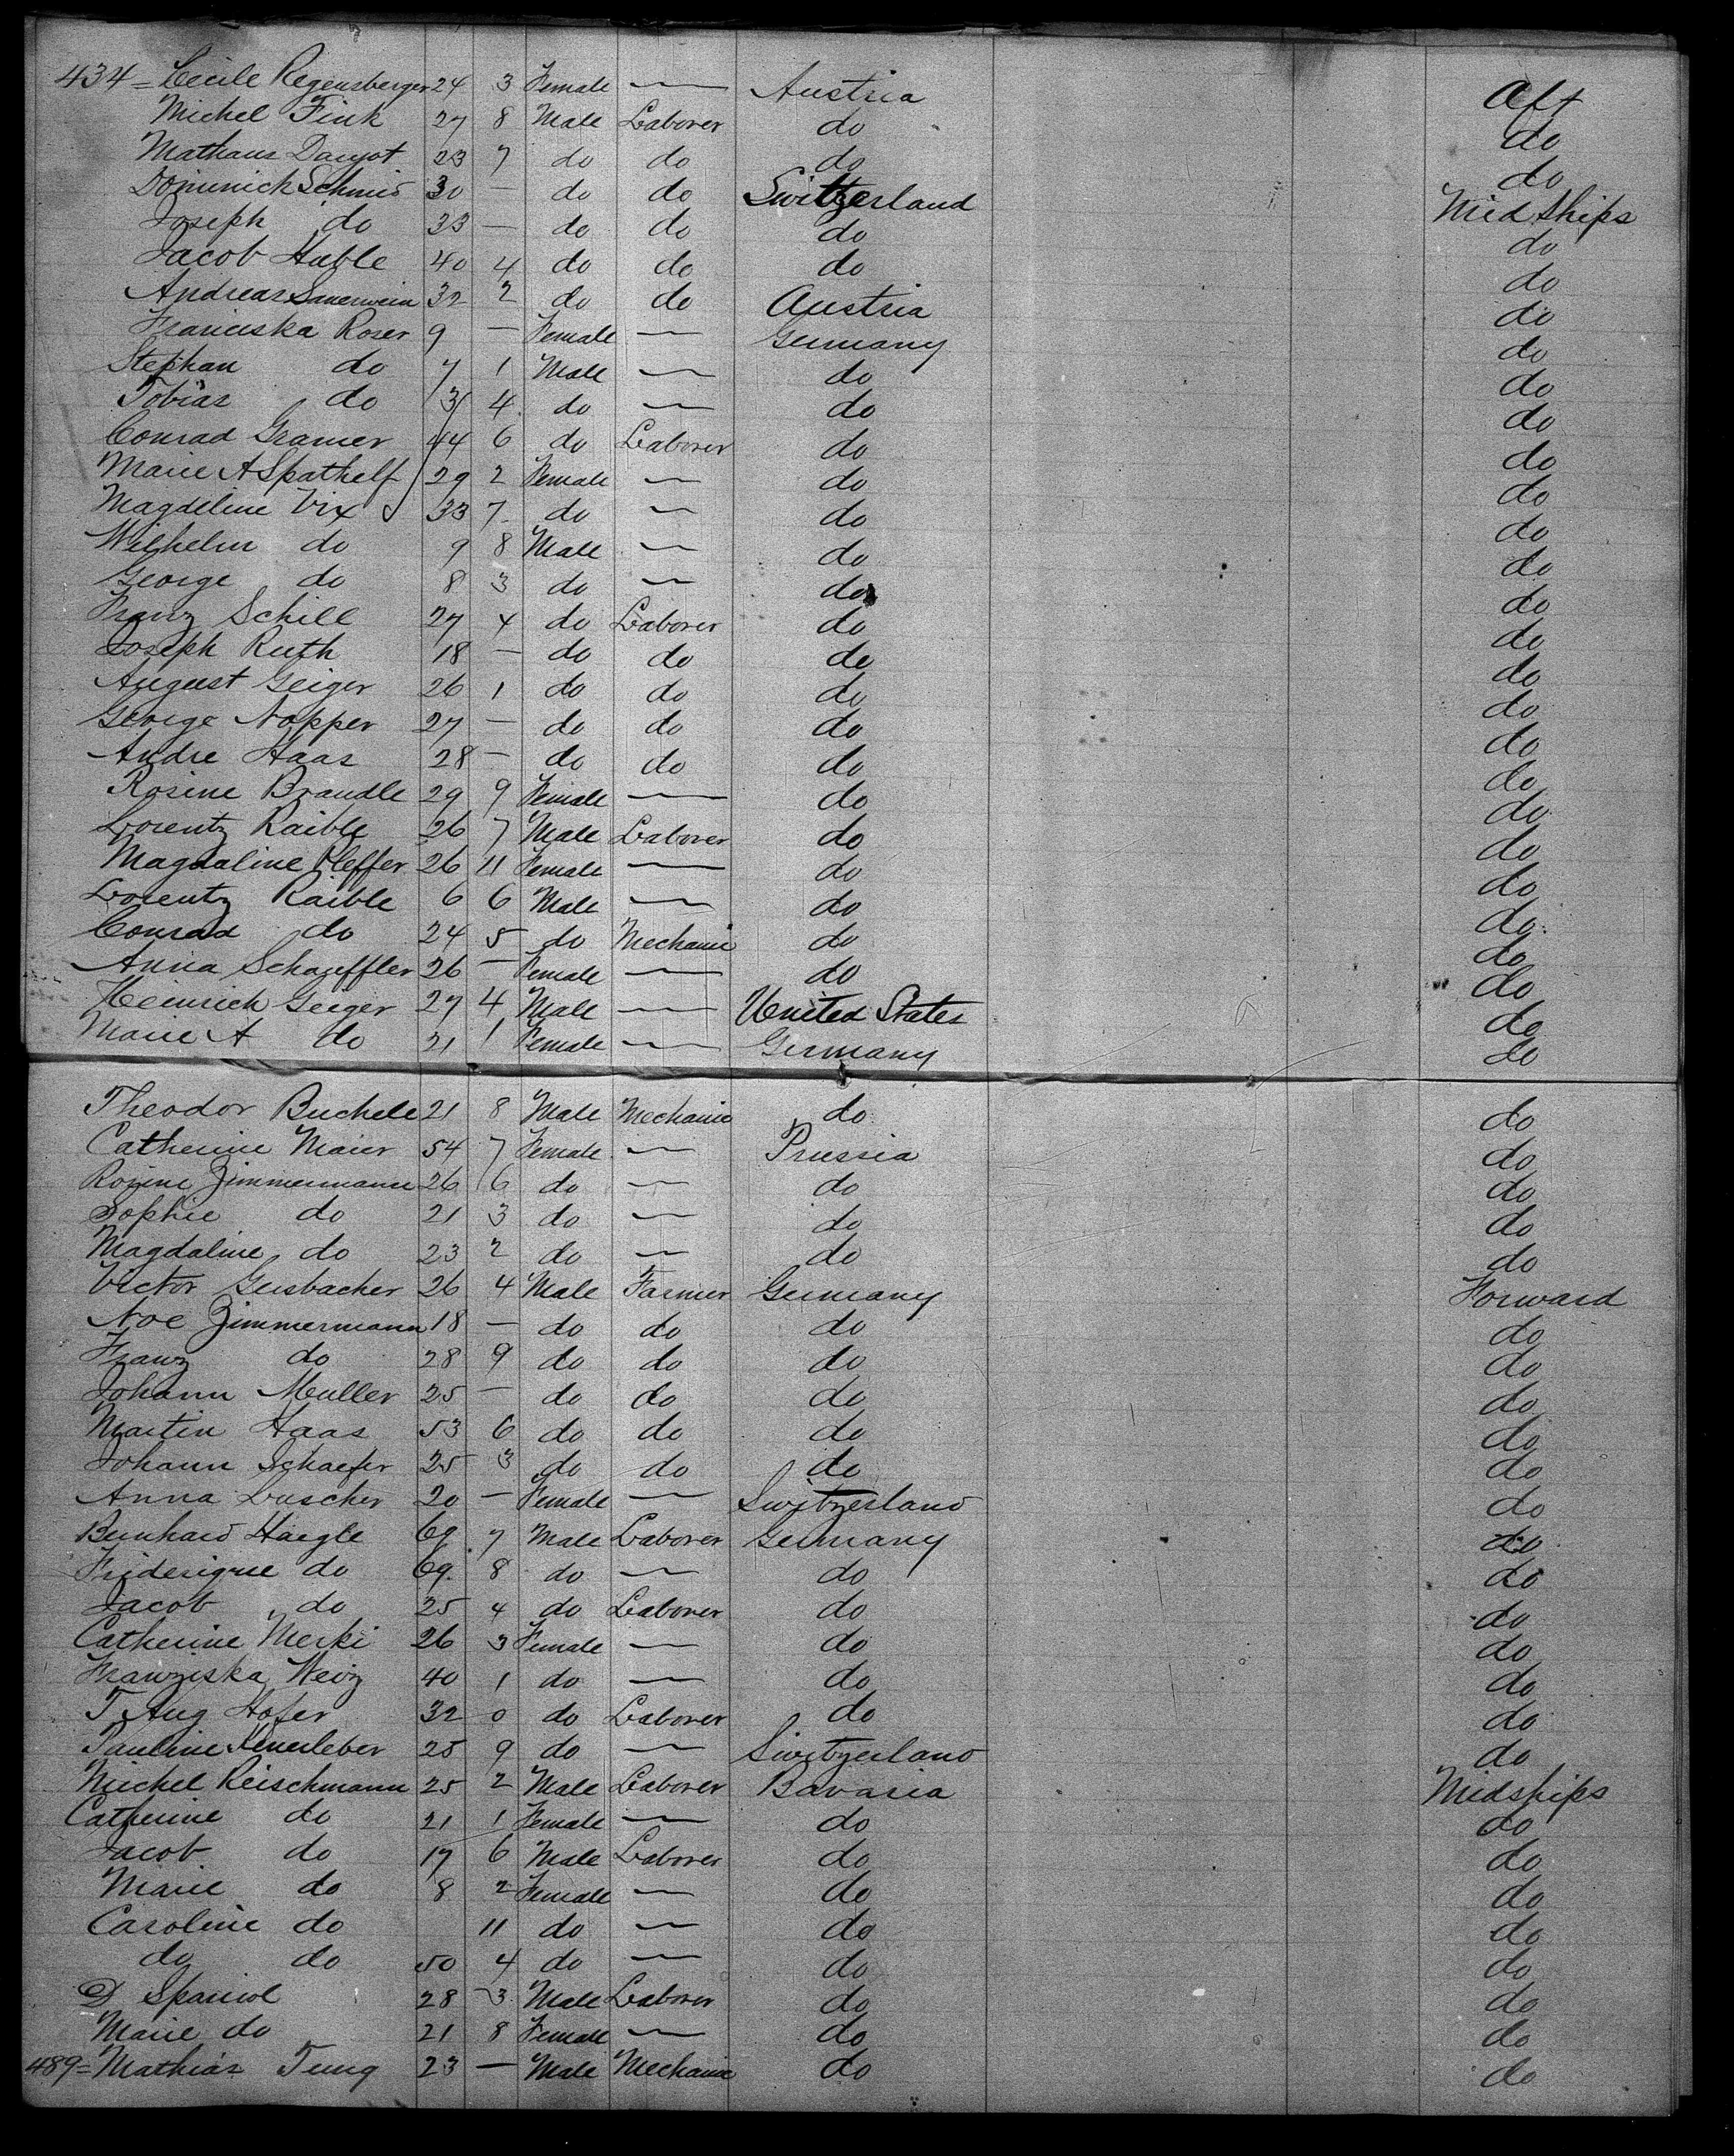 434 = Cecile Regensberger 24 3 Female — Austria Aft
Michel Fink 27 8 Male Laborer do do
Mathaus 23 7 do do do do
Dominick Schmid 30 — do do Switzerland Mid Ships
Joseph do 33 — do do do do
Jacob Huble 40 4 do do do do
Andreas Sauerwein 32 2 do do Austria do
Franciska Roser 9 — Female — Germany do
Stephan do 7 1 Male — do do
Tobias do 3 4 do — do do
Conrad Gramer 44 6 do Laborer do do
Marie A Spathelf 29 2 Female — do do
Magdeline Vix 33 7 do — do do
Wilhelm do 9 8 Male — do do
George do 8 3 do — do do
Franz Schill 27 4 do Laborer do do
Joseph Ruth 18 — do do do do
August Geiger 26 1 do do do do
George Nopper 27 — do do do do
Andre Haas 28 — do do do do
Rosine Braudle 29 9 Female — do do
Lorentz Raible 26 7 Male Laborer do do
Magdaline Pfeffer 26 11 Female — do do
Lorentz Raible 6 6 Male — do do
Conrad do 24 5 do Mechanic do do
Anna Schaeffler 26 — Female — do do
Heinrich Geiger 27 4 Male — United States do
Marie A do 21 1 Female — Germany do
Theodor Buchele 21 8 Male Mechanic do do
Catherine Maier 54 7 Female — Prussia do
Rosine Zimmermann 26 6 do — do do
Sophie do 21 3 do — do do
Magdaline do 23 2 do — do do
Victor Geisbacher 26 4 Male Farmer Germany Forward
Noe Zimmermann 18 — do do do do
Franz do 28 9 do do do do
Johann Muller 25 — do do do do
Martin Haas 53 6 do do do do
Johann Schaefer 25 3 do do do do
Anna Luscher 20 — Female — Switzerland do
Bernhard Haegle 69 7 Male Laborer Germany do
Friderique do 69 8 do — do do
Jacob do 25 4 do Laborer do do
Catherine Merki 26 3 Female — do do
Franziska Weiz 40 1 do — do do
T Aug Hofer 32 0 do Laborer do do
Pauline 25 9 do — Switzerland do
Michel Reischmann 25 2 Male Laborer Bavaria Midships
Catherine do 21 1 Female — do do
Jacob do 17 6 Male Laborer do do
Marie do 8 2 Female — do do
Caroline do 11 do — do do
do do 50 4 do — do do
D Spaniol 28 3 Male Laborer do do
Marie do 21 8 Female — do do
489 = Mathias Tung 23 — Male Mechanic do do